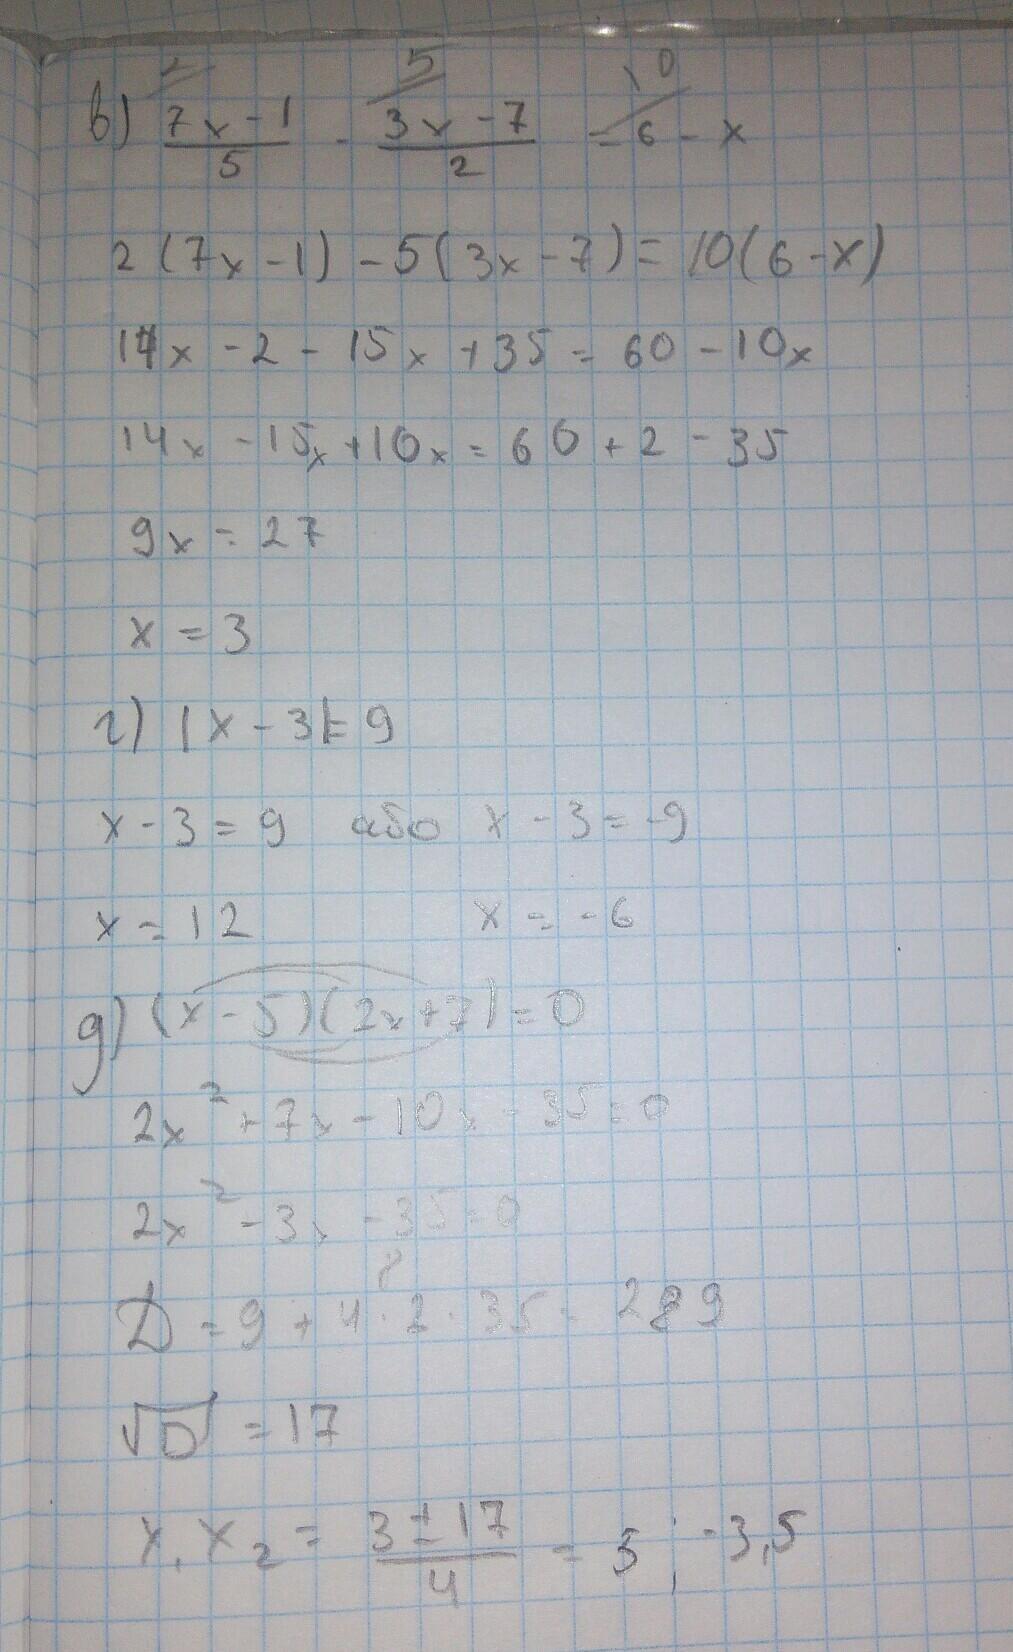 2 5 10
в) (7x - 1)/5 - (3x - 7)/2 = 6 - x
2(7x - 1) - 5(3x - 7) = 10(6 - x)
14x - 2 - 15x + 35 = 60 - 10x
14x - 15x + 10x = 60 + 2 - 35
9x = 27
x = 3
г) |x - 3| = 9
x - 3 = 9 або x - 3 = -9
x = 12 x = -6
д) (x - 5)(2x + 7) = 0
2x² + 7x - 10x - 35 = 0
2x² - 3x - 35 = 0
8
D = 9 + 4 · 2 · 35 = 289
√D = 17
x, x₂ = (3 ± 17)/4 = 5 ; -3,5